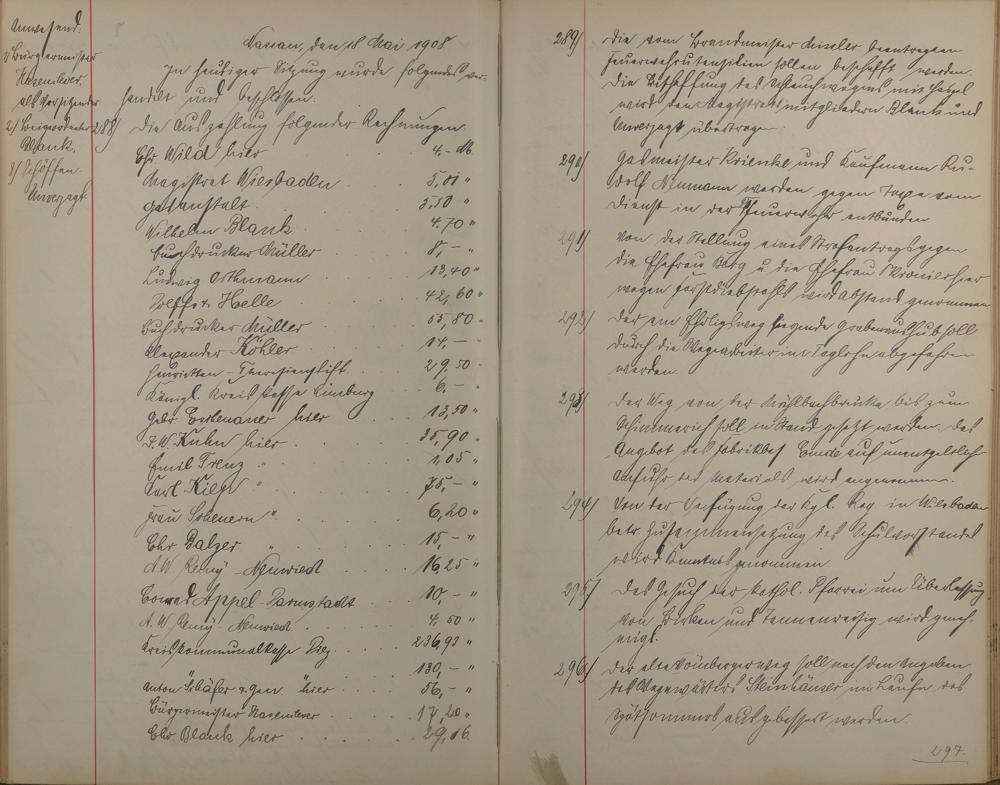 Anwesend:
1) Bürgermeister
Hasenclever,
als Vorsitzender
2) Beigeordneter
Blank.
3) Schöffen
Unverzagt.
Nassau, den 18 Mai 1908
In heutiger Sitzung wurde folgendes ver-
handelt und beschlossen:
288) Die Auszahlung folgender Rechnungen
Chr Wild hier 4.- M.
Magistrat Wiesbaden 5,01 "
Gasanstalt 3.50 "
Wilhelm Blank 4.70 "
Buchdrucker Müller 8,- "
Ludwig Orthmann 13,40 "
Helle 42,60 "
Buchdrucker Müller 55,80 "
Alexander Köhler 14,- "
Henrietten-Theresienstift 29,50 "
Königl. Kreis Kasse Limburg 6.- "
Gebr hier 13,50 "
F. W. Kuhn hier 35,90 "
Emil Trenz " 1,05 "
Karl Kilp " 75,- "
Frau " 6,20 "
Chr. Balzer " 15,- "
A. W Remy - Neuwied 16,25 "
Conrad Appel - Darmstadt 10,- "
A. W Remy - Neuwied 4,50 "
Kreiskommunalkasse Diez 236,93 "
" " 130,- "
Anton Schäfer u. Gen. hier 56,- "
Bürgermeister Hasenclever 17,20 "
Chr Blank hier 29,16.
289) Die vom Brandmeister beantragten
Feuerwehrutensilien sollen beschafft werden.
Die des mit Haspel
wird den Magistratsmitgliedern Blank und
Unverzagt übertragen.
290) Gasmeister Krienke und Kaufmann Ru-
dolf Neumann werden gegen Taxe vom
Dienst in der Feuerwehr entbunden
291) Von der Stellung eines Strafantrags gegen
die Ehefrau u. die Ehefrau hier
wegen Forstdiebstahls wird Abstand genommen
292) Der am liegende Grabenaushub soll
durch die Wegearbeiter im Taglohn abgefahren
werden.
293) Der Weg von der Mühlbachbrücke bis zum
Schimmerich soll in Stand gesetzt werden. Das
Angebot des Fabrikbes auf unentgeltliche
Anfuhr des Materials wird angenommen.
294) Von der Verfügung der Kgl. Reg. in Wiesbaden
betr. Zusammensetzung des Schulvorstandes
wird Kenntnis genommen.
295) Das Gesuch der kathol. Pfarrei um Überlassung
von Birken und Tannenreisig wird geneh-
migt.
296) Der alte soll nach den Angaben
des Wegewärters Steinhäuser im Laufe des
Spätsommers ausgebessert werden.
297.